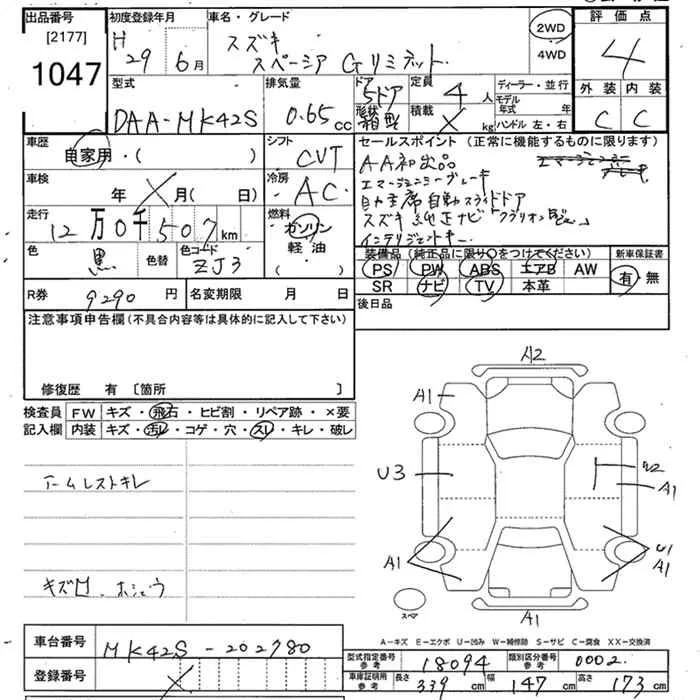 出品番号 初度登録年月 車名・グレード 評価点
[2177]
1047
H 29年 6月
スズキ
スペーシア Gリミテッド
2WD
4WD
4
外装 内装
C C
型式 排気量 ドア 定員 ディーラー・並行
DAA-MK42S 0.65cc 5ドア 4人
形状 積載 モデル年式 年
箱型 X kg ハンドル 左・右
車歴 シフト セールスポイント (正常に機能するものに限ります)
自家用・( ) CVT
A-A初出品
エマージェンシーブレーキ
車検 冷房
年 X 月(日) AC
助手席 自動スライドドア
スズキ純正ナビ
インテリジェントキー
走行 燃料
12万0千507km ガソリン
軽油
( )
色 色替 色コード
黒 ZJ3
装備品 (純正品に限り○をつけてください) 新車保証書
PS PW ABS エアB AW 有・無
SR ナビ TV 本革
R券 9290円 名変期限 月 日 後日品
注意事項申告欄(不具合内容等は具体的に記入して下さい)
修復歴 有 〔箇所 〕
検査員 FW キズ・飛石・ヒビ割・リペア跡・×要
記入欄 内装 キズ・汚レ・コゲ・穴・スレ・キレ・破レ
アームレストキレ
キズ凹 ホシュウ
A2
A1
U3
A1
A1
U1
A1
A1
スペア
A―キズ E―エクボ U―凹み W―補修跡 S―サビ C―腐食 XX―交換済
車台番号 MK42S-202780
登録番号 X
型式指定番号 参考 18094 類別区分番号 参考 0002
車庫証明用 参考 長さ 339cm 幅 147cm 高さ 173cm